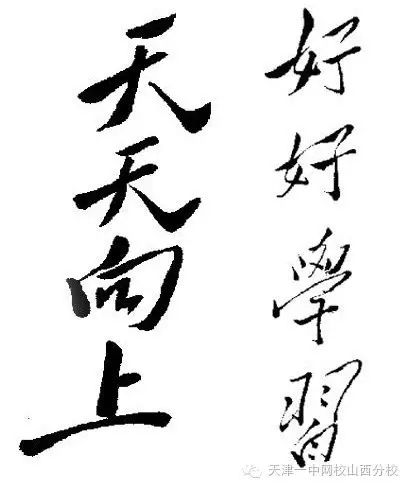 好好學習
天天向上
天津一中网校山西分校